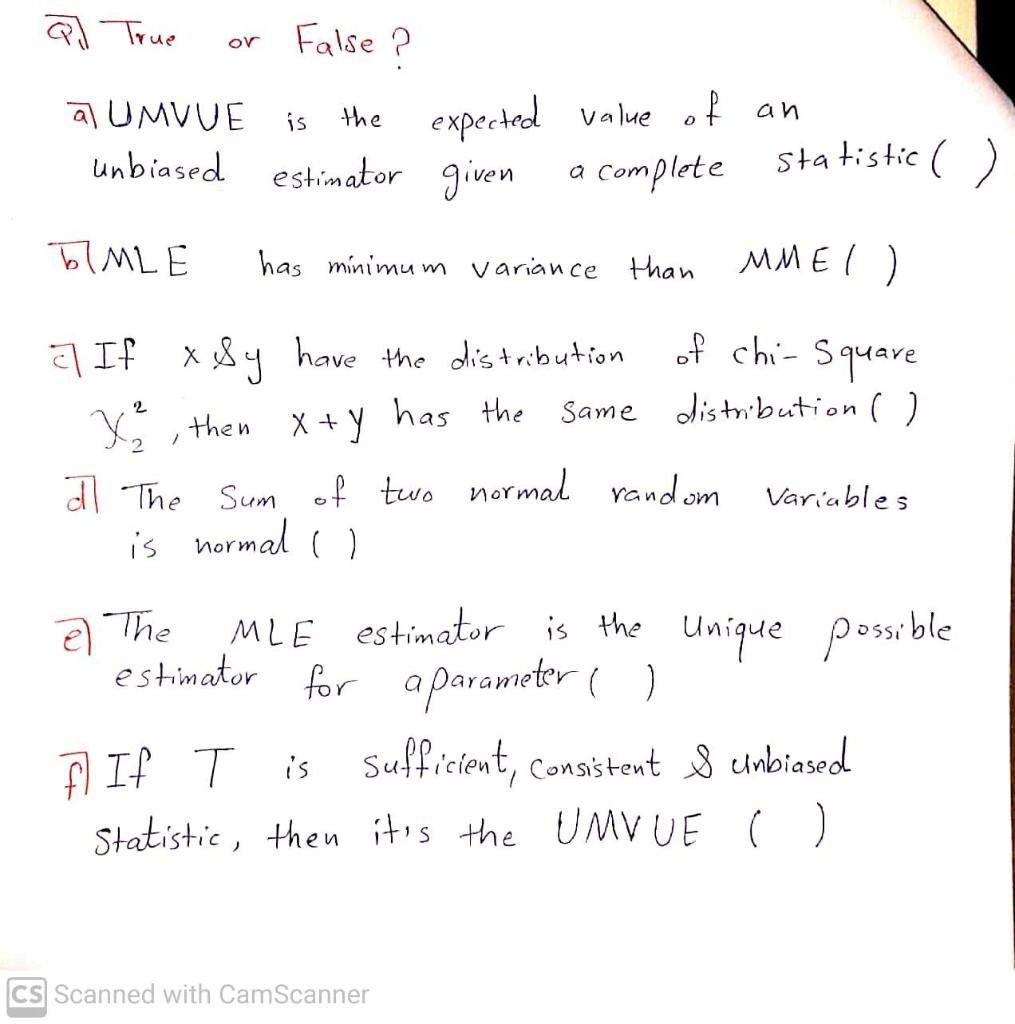 Q) True or False ?
a) UMVUE is the expected value of an
unbiased estimator given a complete statistic ( )
b) MLE has minimum variance than MME ( )
c) If x & y have the distribution of chi-square
χ²₂ , then x + y has the same distribution ( )
d) The sum of two normal random variables
is normal ( )
e) The MLE estimator is the unique possible
estimator for a parameter ( )
f) If T is sufficient, consistent & unbiased
statistic, then it's the UMVUE ( )
CS Scanned with CamScanner